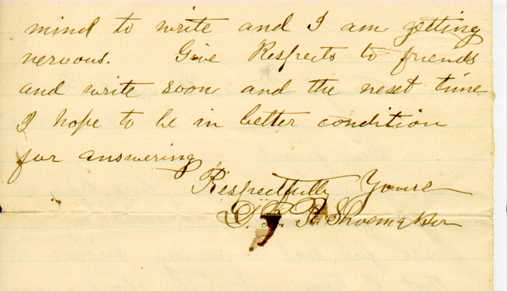 mind to write and I am getting
nervous. Give Respects to friends
and write soon and the next time
I hope to be in better condition
for answering
Respectfully Yours
Shoemaker